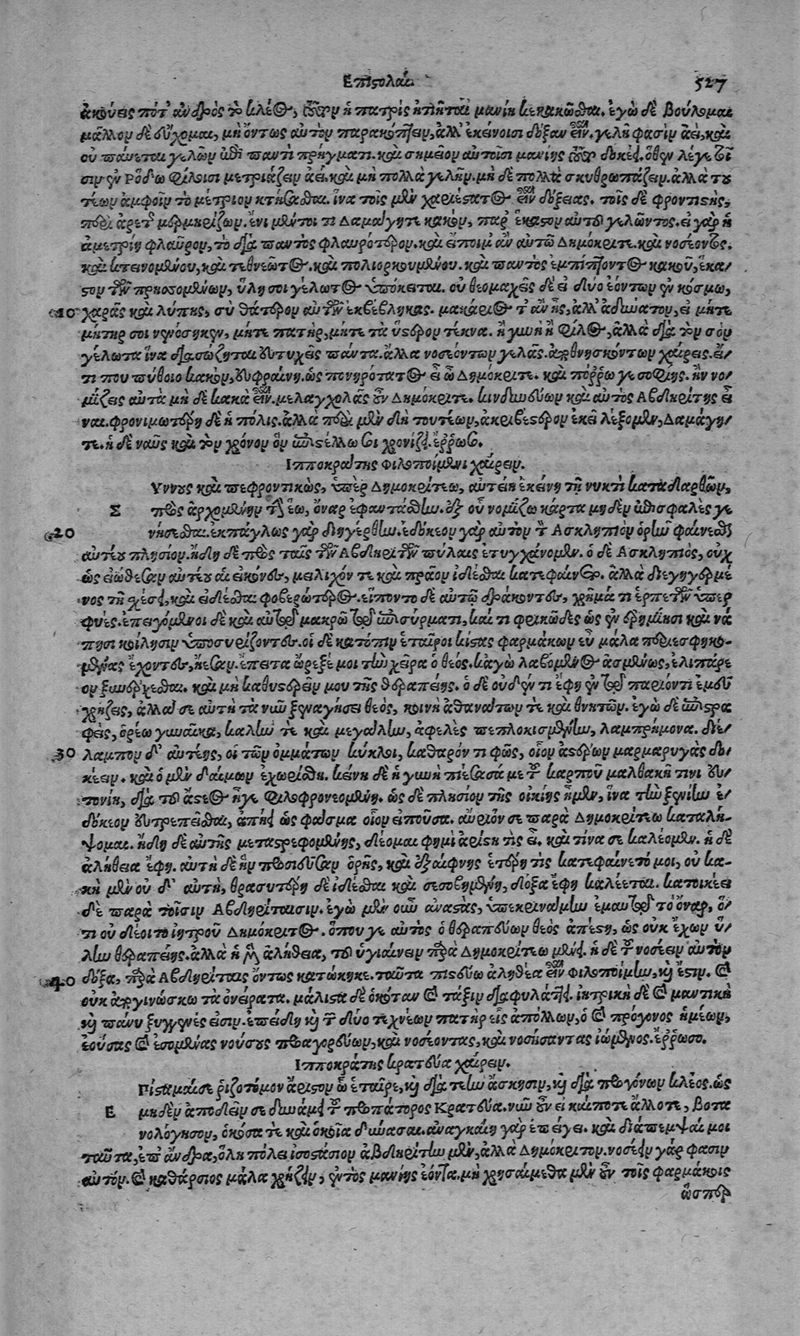 Επιϛολαί. 527
ἀκούεις πότ' ἀνδρὸς τὸ κλέος, ὅτου ἡ πατρὶς ᾐτίηται μανίη κεκακῶσθαι. ἐγὼ δὲ βούλομαι
μᾶλλον δὲ εὔχομαι, μὴ ὄντως αὐτὸν παρακόπτειν, ἀλλ' ἐκείνοισι δόξαν εἶναι. γελῇ φασὶν ἀεὶ, καὶ
οὐ παύεται γελῶν ἐπὶ παντὶ πρήγματι. καὶ σημεῖον αὐτοῖσι μανίης τοῦτο δοκέει. ὅθεν λέγε τοῖ
σιν ἐν Ρόδῳ φίλοισι μετριάζειν ἀεὶ, καὶ μὴ πολλὰ γελῆν. μὴ δὲ πολλὰ σκυθρωπάζειν. ἀλλὰ του
τέων ἀμφοῖν τὸ μέτριον κτῆσθαι. ἵνα τοῖς μὲν χαριέστατος εἶναι δόξειας. τοῖς δὲ φροντιστὴς,
περὶ ἀρετῆς μερμηρίζων. ἔνι μέντοι τι Δαμάγητε κακὸν, παρ' ἕκαστον αὐτοῦ γελῶντος. εἰ γὰρ ἡ
ἀμετρίη φλαῦρον, τὸ διὰ παντὸς φλαυρότερον. καὶ εἴποιμ' ἂν αὐτῷ Δημόκριτε. καὶ νοσέοντος.
καὶ κτεινομένου, καὶ τεθνεῶτος. καὶ πολιορκουμένου. καὶ παντὸς ἐμπίπτοντος κακοῦ, ἕκα/
στον τῶν πρησσομένων, ὕλη σοι γέλωτος ὑπόκειται. οὐ θεομαχέεις δὲ εἰ δύο ἐόντων ἐν κόσμῳ,
10 χαρᾶς καὶ λύπης, σὺ θάτερον αὐτῶν ἐκβέβληκας. μακάριός τ' ἂν ἦς, ἀλλ' ἀδύνατον, εἰ μήτε
μήτηρ σοι νενόσηκεν, μήτε πατὴρ, μήτε τὰ ὕστερον τέκνα. ἢ γυνὴ ἢ φίλος, ἀλλὰ διὰ τὸν σὸν
γέλωτα ἵνα διασώζηται εὐτυχέως πάντα. ἀλλὰ νοσεόντων γελᾷς. ἀποθνησκόντων χαίρεις. εἴ/
τι που πύθοιο κακὸν, εὐφραίνῃ. ὡς πονηρότατος εἶ ὦ Δημόκριτε. καὶ πόῤῥω γε σοφίης. ἢν νο/
μίζεις αὐτὰ μὴ δὲ κακὰ εἶναι. μελαγχολᾷς οὖν Δημόκριτε. κινδυνεύων καὶ αὐτὸς Αβδηρίτης εἶ
ναι. φρονιμωτέρη δὲ ἡ πόλις. ἀλλὰ περὶ μὲν δὴ τουτέων, ἀκριβέστερον ἐκεῖ λέξομεν, Δαμάγη/
τε. ἡ δὲ ναῦς καὶ τὸν χρόνον ὃν ἐπιστέλλω σοι χρονίζει. ἔῤῥωσο.
Ιπποκράτης Φιλοποίμενι χαίρειν.
Υννους καὶ πεφροντικὼς, ὑπὲρ Δημοκρίτεω, αὐτέῃ ἐκείνῃ τῇ νυκτὶ καταδαρθὼν,
Σ πρὸς ἀρχομένην τὴν ἕω, ὄναρ ἐφαντάσθην. ἐξ οὗ νομίζω κάρτα μηδὲν ἐπισφαλὲς γε
20 νήσεσθαι. ἐκπάγλως γὰρ διηγέρθην. ἐδόκεον γὰρ αὐτὸν τὸν Ασκληπιὸν ὁρῆν φαίνεσθαί
αὐτέου πλησίον. ἤδη δὲ πρὸς ταῖς τῶν Αβδηριτῶν πύλαις ἐτυγχάνομεν. ὁ δὲ Ασκληπιὸς, οὐχ
ὡς εἰώθεσαν αὐτέου αἱ εἰκόνες, μείλιχόν τε καὶ πρᾶον ἰδέσθαι κατεφαίνετο. ἀλλὰ διεγηγερμέ
νος τῇ σχέσει, καὶ ἰδέσθαι φοβερώτερος. εἵποντο δὲ αὐτῷ δράκοντες, χρῆμά τι ἑρπετῶν ὑπερ
φυές. ἐπειγόμενοι δὲ καὶ αὐτοὶ μακρῷ τῷ ἐπισύρματι, καί τι φρικῶδες ὡς ἐν ἐρημίῃσι καὶ νά
πῃσι κοίλῃσιν ὑποσυρίζοντες. οἱ δὲ κατόπιν ἑταῖροι κίστας φαρμάκων εὖ μάλα περιεσφηκω/
μένας ἔχοντες, ᾔεσαν. ἔπειτα ὤρεξέ μοι τὴν χεῖρα ὁ θεός. κἀγὼ λαβόμενος ἀσμένως, ἐλιπάρε
ον ξυνέρχεσθαι. καὶ μὴ καθυστερέειν μου τῆς θεραπείης. ὁ δὲ οὐδέν τι ἔφη ἐν τῷ παρεόντι ἐμεῦ
χρῄζεις, ἀλλά σε αὐτὴ τὰ νῦν ξεναγήσει θεὸς, κοινὴ ἀθανάτων τε καὶ θνητῶν. ἐγὼ δὲ ἐπιστρα
φεὶς, ὁρέω γυναῖκα, καλήν τε καὶ μεγάλην, ἀφελὲς πεπλοκισμένην, λαμπρήμονα. διέ/
30 λαμπον δ' αὐτέης, οἱ τῶν ὀμμάτων κύκλοι, καθαρόν τι φῶς, οἷον ἀστέρων μαρμαρυγὰς δο/
κέειν. καὶ ὁ μὲν δαίμων ἐχωρίσθη. κείνη δὲ ἡ γυνὴ πιέσασά με τοῦ καρποῦ μαλθακῇ τινὶ εὐ/
τονίῃ, διὰ τοῦ ἄστεος ἦγε φιλοφρονεομένη. ὡς δὲ πλησίον τῆς οἰκίης ἦμεν, ἵνα τὴν ξενίην ἐ/
δόκεον εὐτρεπέσθαι, ἀπῄει ὡς φάσμα οἷον εἰποῦσα. αὔριόν σε παρὰ Δημοκρίτῳ καταλή/
ψομαι. ἤδη δὲ αὐτῆς μεταστρεφομένης, δέομαι φημὶ ἀρίστη τίς εἶ. καὶ τίνα σε καλέομεν. ἡ δὲ
ἀλήθεια ἔφη. αὕτη δὲ ἣν προσιοῦσαν ὁρῇς, καὶ ἐξαίφνης ἑτέρη τὶς κατεφαίνετό μοι, οὐ κα/
κὴ μὲν οὐδ' αὐτὴ, θρασυτέρη δὲ ἰδέσθαι καὶ σεσοβημένη, Δόξα ἔφη καλέεται. κατοικέει
δὲ παρὰ τοῖσιν Αβδηρίταισιν. ἐγὼ μὲν οὖν ἀναστὰς, ὑπεκρινάμην ἐμαυτῷ τὸ ὄναρ, ὅ/
τι οὐ δέοιτο ἰητροῦ Δημόκριτος. ὅπου γε αὐτὸς ὁ θεραπεύων θεὸς ἀπέστη, ὡς οὐκ ἔχων ὕ/
λην θεραπείης. ἀλλὰ ἡ μὲν ἀλήθεια, τοῦ ὑγιαίνειν παρὰ Δημοκρίτεω μένει. ἡ δὲ τοῦ νοσέειν αὐτὸν
40 δόξα, παρὰ Αβδηρίταις ὄντως κατῴκηκε. ταῦτα πιστεύω ἀληθέα εἶναι Φιλοποίμην, κἄστιν. καὶ
οὐκ ἀπογινώσκω τὰ ὀνείρατα. μάλιστα δὲ ὁκόταν καὶ τάξιν διαφυλάττῃ. ἰητρικὴ δὲ καὶ μαντικὴ
καὶ πάνυ ξυγγενέες εἰσίν. ἐπειδὴ καὶ τῶν δύο τεχνέων πατὴρ εἷς ἀπόλλων, ὁ καὶ πρόγονος ἡμέων,
ἐούσας καὶ ἐσομένας νούσους προαγορεύων, καὶ νοσέοντας, καὶ νοσήσαντας ἰώμενος. ἔῤῥωσο.
Ιπποκράτης κρατεύα χαίρειν.
Πίσταμαί σε ῥιζοτόμον ἄριστον ὦ ἑταῖρε, καὶ διὰ τὴν ἄσκησιν, καὶ διὰ προγόνων κλέος. ὡς
Ε μηδὲν ἀποδεῖν σε δυνάμει τοῦ προπάτορος Κρατεύα. νῦν οὖν εἰ καί ποτε ἄλλοτε, βοτα
νολόγησον, ὁκόσα τε καὶ ὁκοῖα δύνασαι. ἀναγκαίη γὰρ ἐπείγει. καὶ διάπεμψαί μοι
ταῦτα, ἐπ' ἄνδρα, ὅλῃ πόλει ἰσοστάσιον ἀβδηρίτην μὲν, ἀλλὰ Δημόκριτον. νοσέειν γὰρ φασὶν
αὐτόν. καὶ καθάρσιος μάλα χρῄζειν, ἐντὸς μανίης ἐόντα. μὴ χρησαίμεθα μὲν οὖν τοῖς φαρμάκοις
ὥσπερ